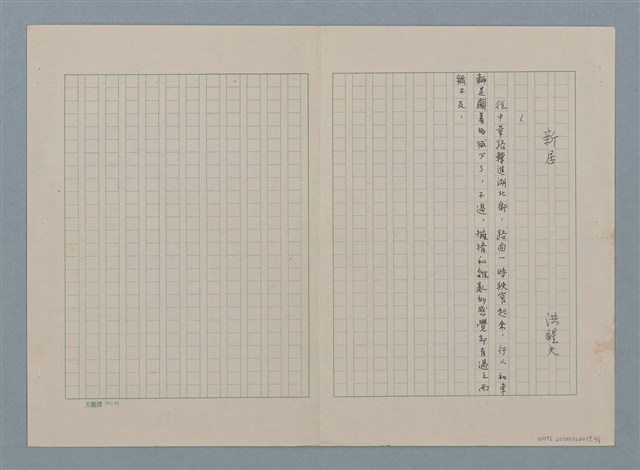 新居
洪醒夫
1.
從中華路轉進湖北街，路面一時狹窄起來，行人和車
輛是顯著的減少了，不過，擁擠和雜亂的感覺卻有過之而
無不及。